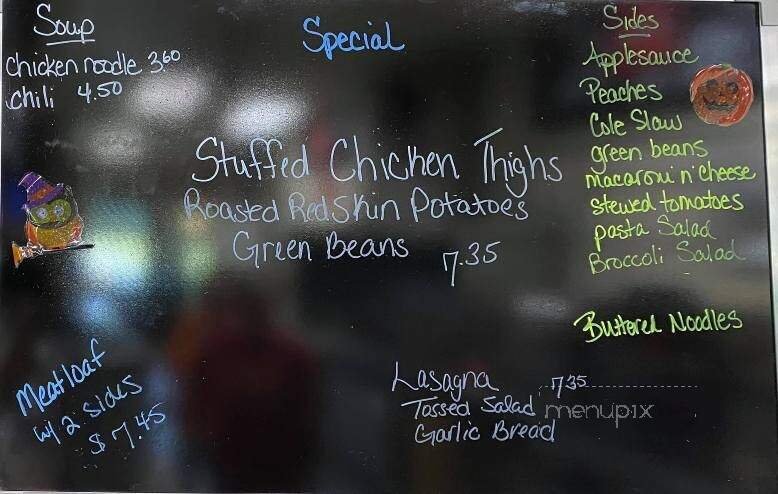 Soup
Chicken noodle 3.60
chili 4.50
Special
Stuffed Chicken Thighs
Roasted RedSkin Potatoes
Green Beans 7.35
Sides
Applesauce
Peaches
Cole Slaw
green beans
macaroni n' cheese
stewed tomatoes
pasta Salad
Broccoli Salad
Buttered Noodles
Meatloaf
w/ 2 sides
$7.45
Lasagna 7.35
Tossed Salad
Garlic Bread
menupix